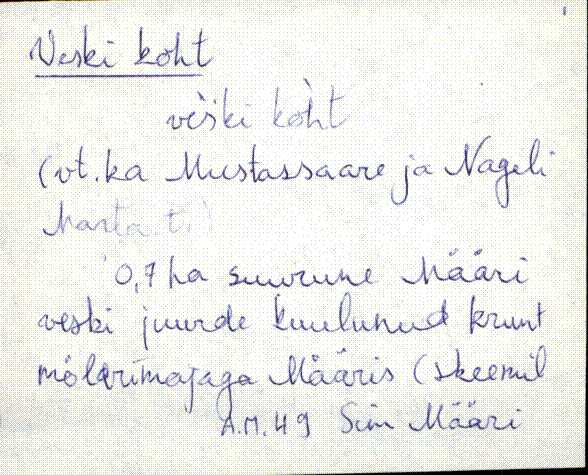 Veski koht
vèski kòht
(vt. ka Mustassaare ja Nageli
Marta t.)
0,7 ha suurune Määri
veski juurde kuulunud krunt
mölarimajaga Määris (skeemil
A.M. 49 Sim Määri